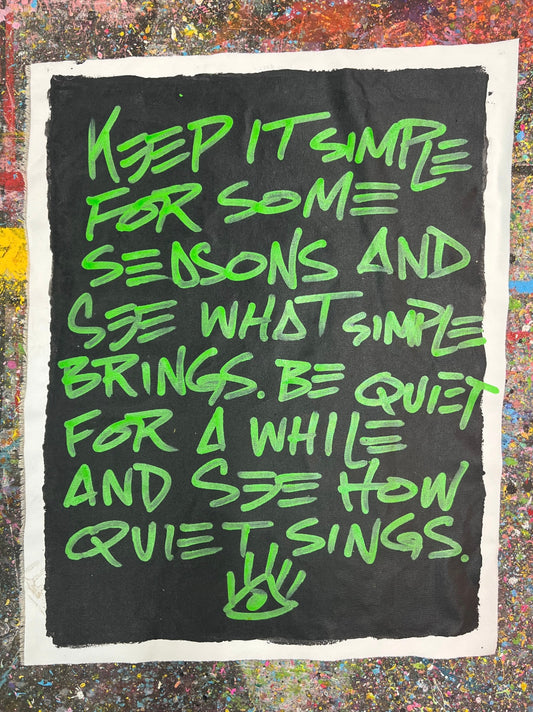 KEEP IT SIMPLE
FOR SOME
SEASONS AND
SEE WHAT SIMPLE
BRINGS. BE QUIET
FOR A WHILE
AND SEE HOW
QUIET SINGS.